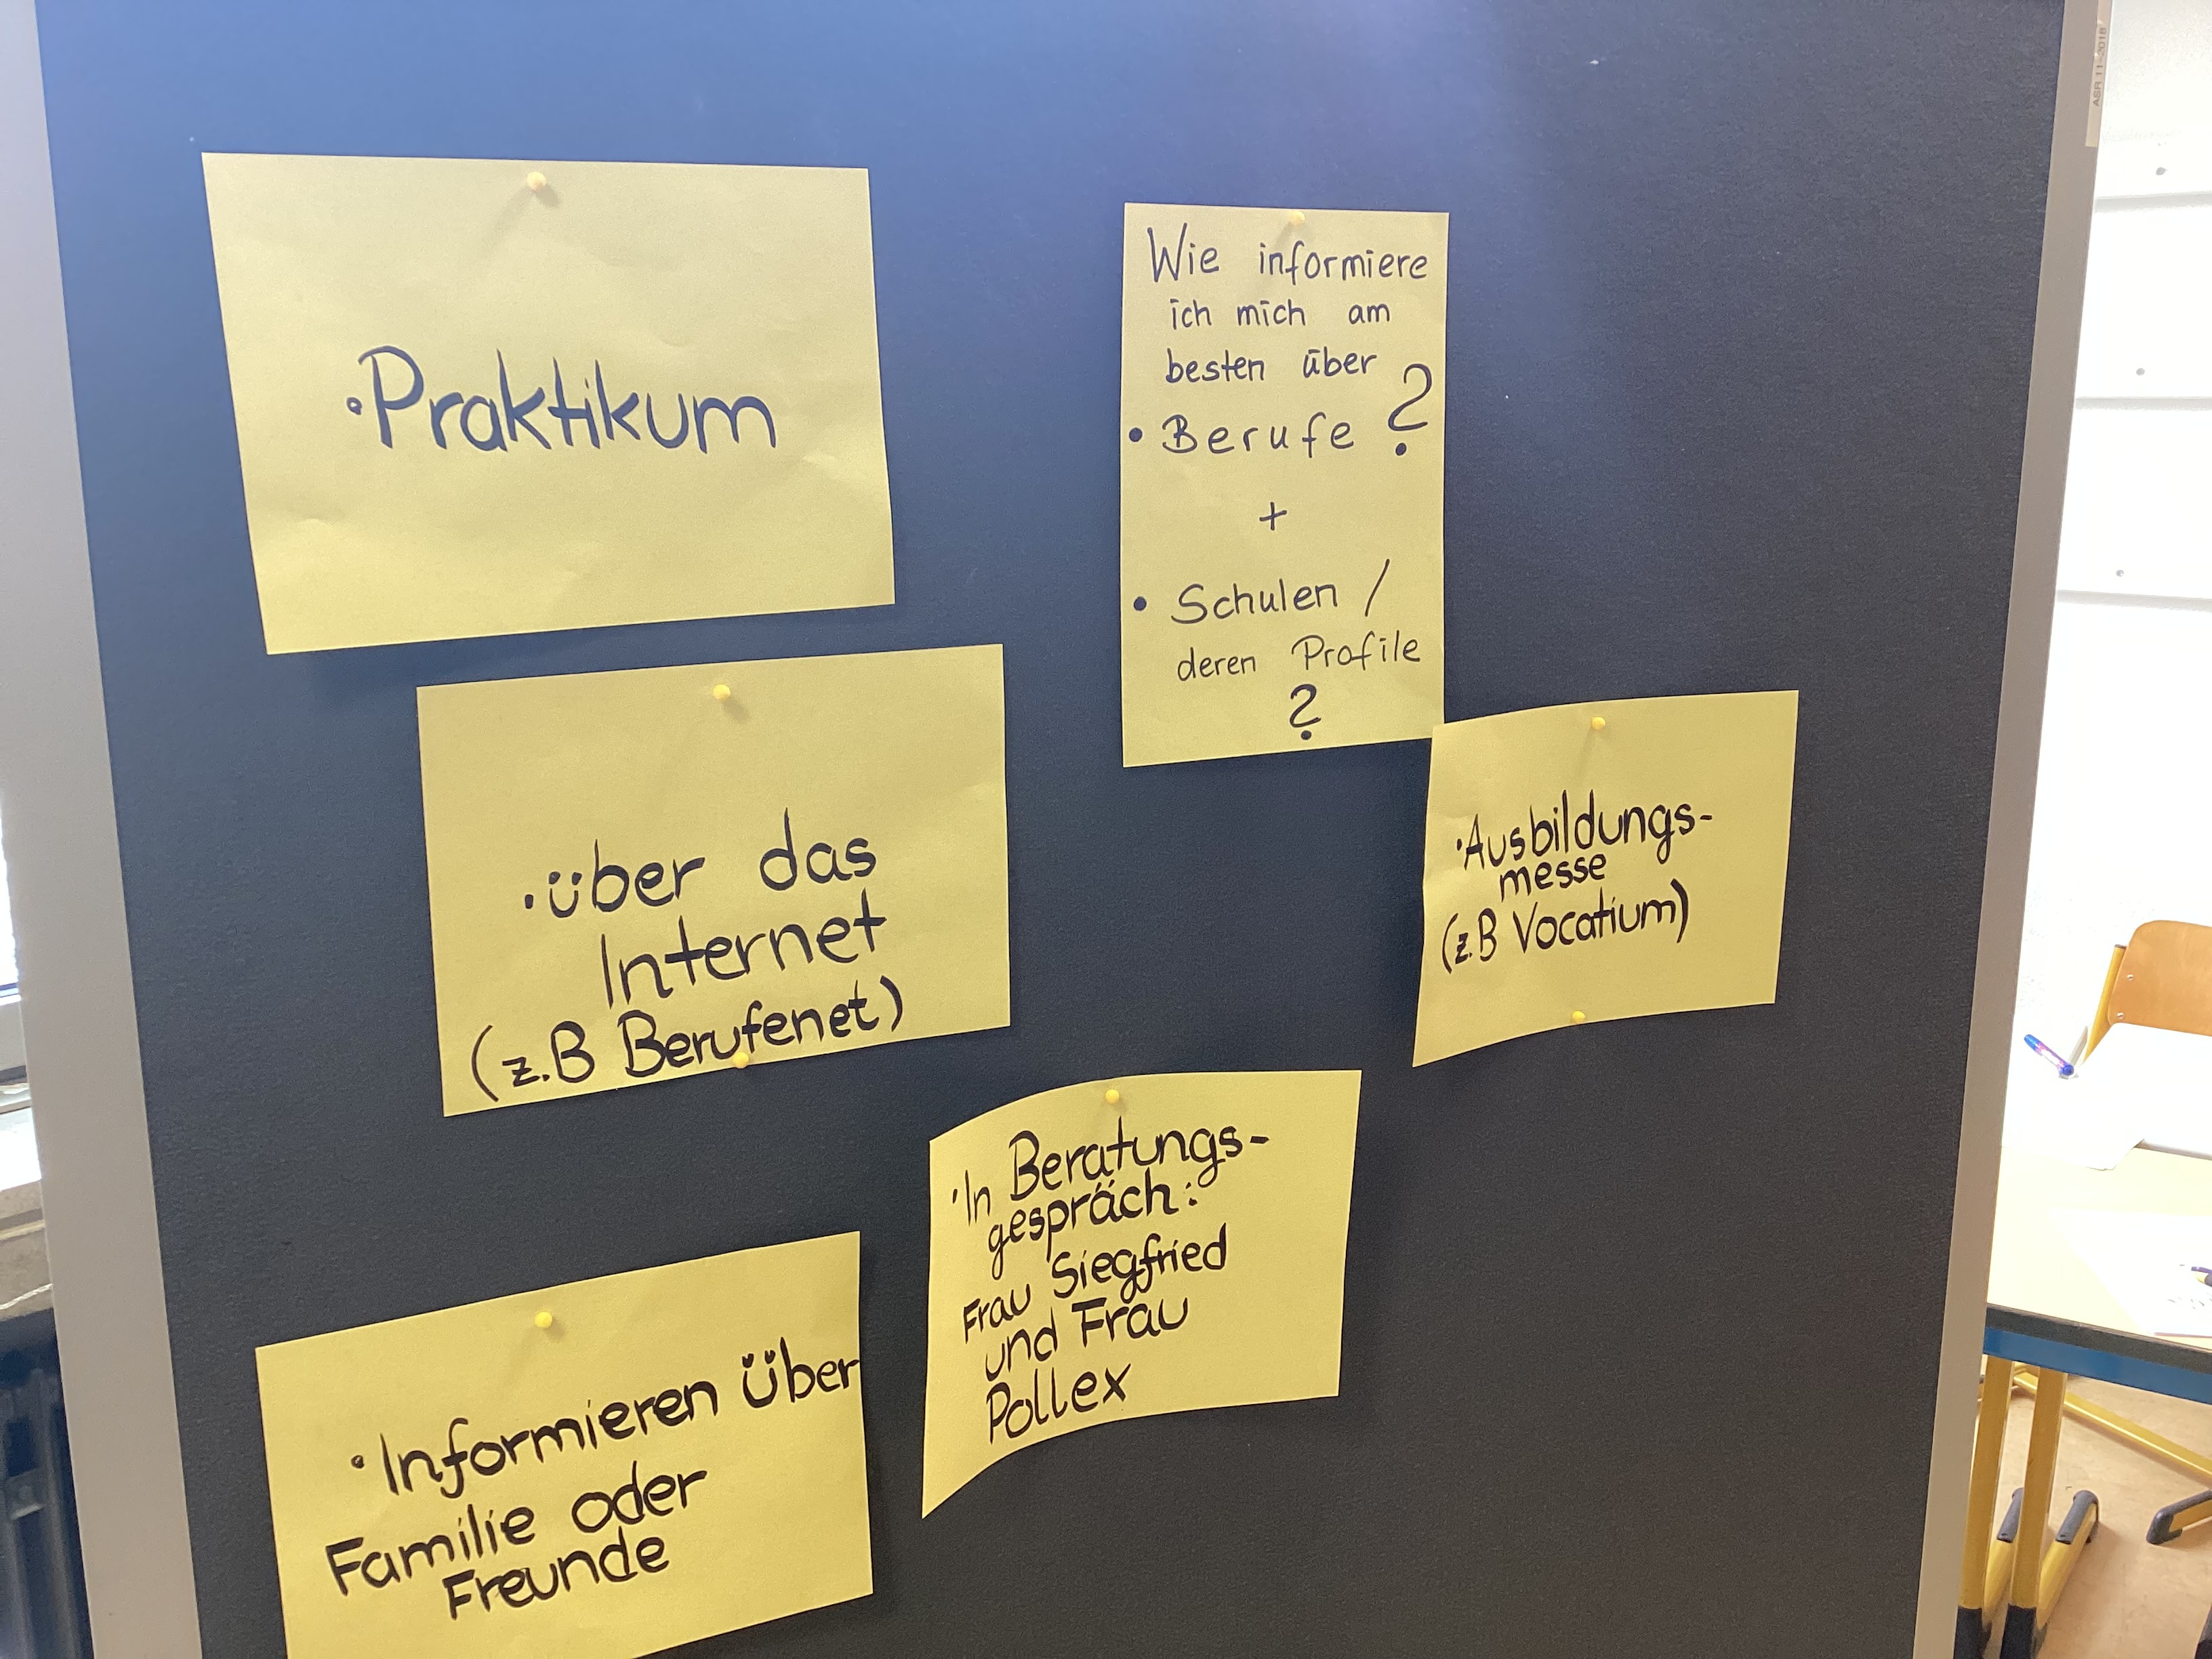 Wie informiere
ich mich am
besten über
• Berufe ?
+
• Schulen /
deren Profile
?
• Praktikum
• über das
Internet
(z.B Berufenet)
• Ausbildungs-
messe
(z.B Vocatium)
• In Beratungs-
gespräch:
Frau Siegfried
und Frau
Pollex
• Informieren Über
Familie oder
Freunde
ASR 11-2018